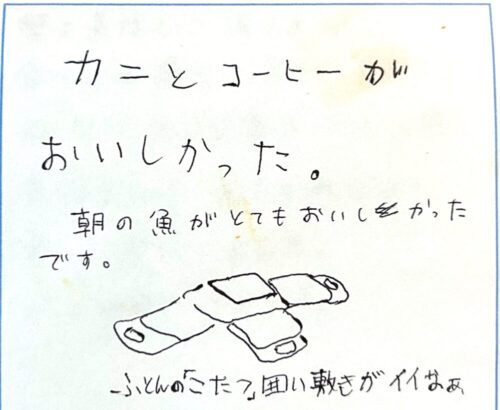 カニとコーヒーが
おいしかった。
朝の魚がとてもおいしかった
です。
ふとんの「こたつ」囲い敷きがイイなぁ